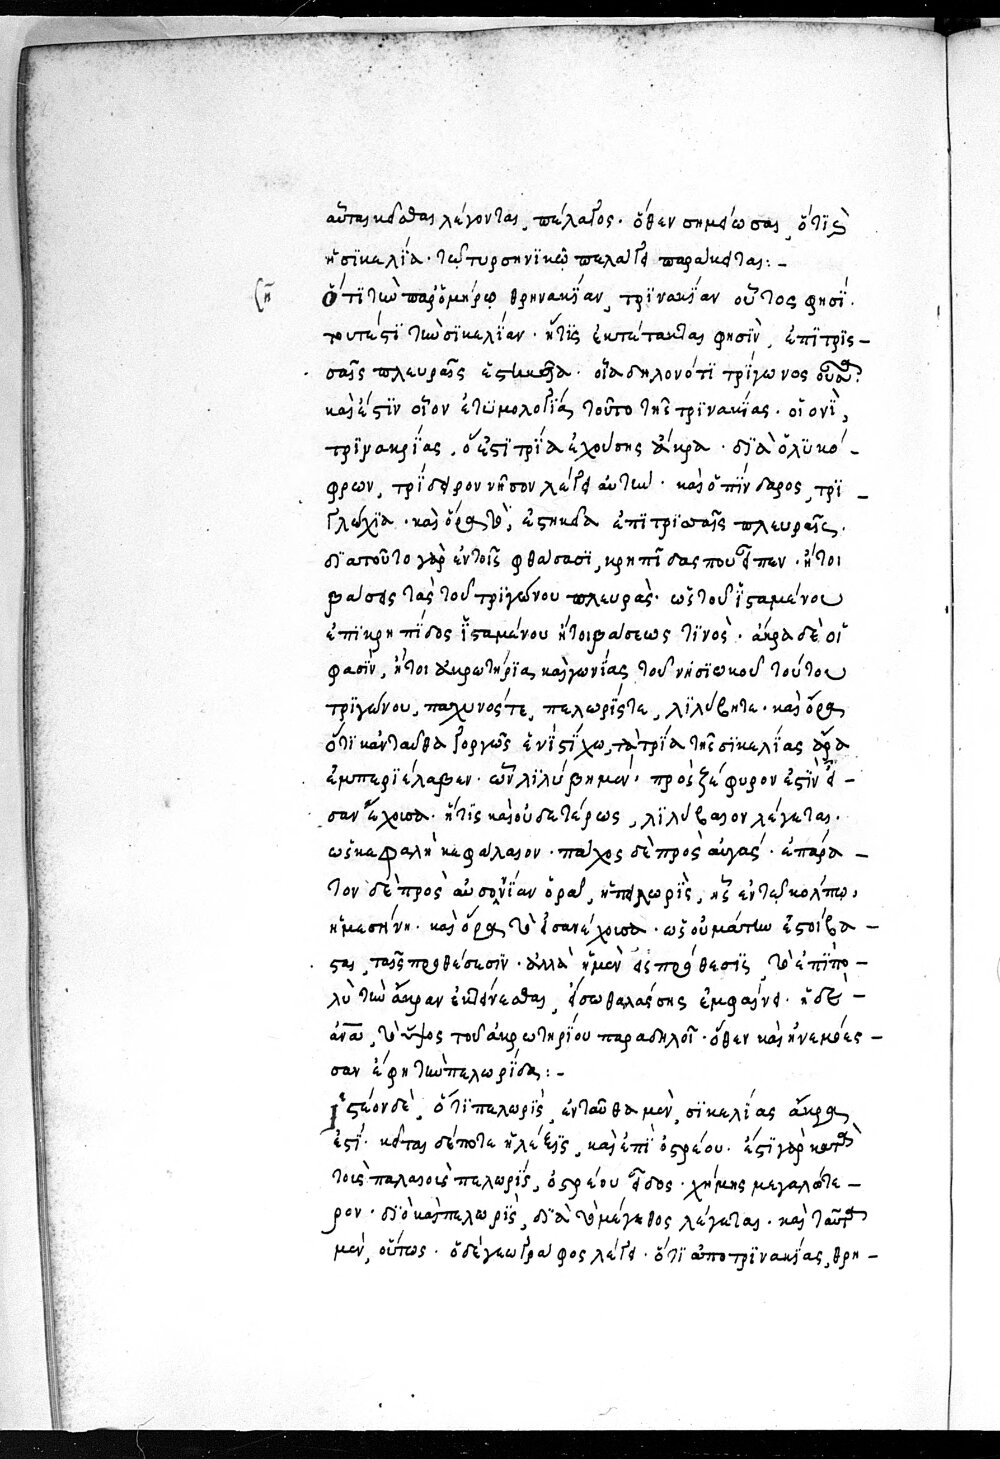 αὗται κεῖσθαι λέγονται, πέλαγος. ὅθεν σημείωσαι, ὅτι
ἡ σικελία. τῷ τυρσηνικῷ πελάγει παράκειται:-
Ὅτι τὴν παρ' ὁμήρῳ θρηνακίαν, τρινακίαν οὗτος φησί.
τουτέστι τὴν σικελίαν. ἥτις ἐκτέτανται φησὶν, ἐπὶ τρισ-
σαῖς πλευραῖς ἑστηκυῖα. οἷα δηλονότι τρίγωνος οὖσα.
καὶ ἔστιν οἷον ἐτυμολογία τοῦτο τῆς τρινακίας. οἱονὶ,
τρινακρίας, ὅ ἐστι τρία ἐχούσης ἄκρα. διὰ ὁ λυκό-
φρων, τρίδειρον νῆσον λέγει αὐτήν. καὶ ὁ πίνδαρος, τρι-
γλώχινα. καὶ ὅρα τὸ, ἑστηκυῖα ἐπὶ τρισσαῖς πλευραῖς.
διατοῦτο γὰρ ἐν τοῖς φθάσασι, κρηπῖδας που εἶπεν. ἤτοι
βάσεις τὰς τοῦ τριγώνου πλευράς. ὡς τοῦ ἱσταμένου
ἐπὶ κρηπίδος ἱσταμένου ἤτοι βάσεως τινός. ἄκρα δὲ οἵ
φασὶν, ἤτοι ἀκρωτήρια καὶ γωνίας τοῦ νησιωκοῦ τούτου
τριγώνου, παχυνός τε, πελωρίς τε, λιλύβη τε. καὶ ὅρα
ὅτι κἀνταῦθα γοργῶς ἑνὶ στίχῳ, τὰ τρία τῆς σικελίας ἄκρα
ἐμπεριέλαβεν. ὧν λιλύβη μέν, πρὸς ζέφυρον ἐστὶν εἰ-
σανέχουσα. ἥτις καὶ οὐδετέρως, λιλύβαιον λέγεται.
ὡς κεφαλὴ κεφάλαιον. πάχος δὲ πρὸς αὐγάς. ἐπαρα-
τον δὲ πρὸς αὐσονίαν ὁρᾷ, ἡ πελωρὶς, ἧς ἐν τῷ κόλπῳ,
ἡ μεσήνη. καὶ ὅρα τὸ εἰσανέχουσα. ὡς οὐ μάτην ἐστοίβα-
σται, ταῖς προθέσεσιν. ἀλλὰ ἡ μὲν εἰς πρόθεσις, τὸ ἐπιπο-
λὺ τὴν ἄκραν ἐκτείνεσθαι, εἴσω θαλάσσης ἐμφαίνει. ἡ δὲ
ἀνὰ, τὸ ὕψος τοῦ ἀκρωτηρίου παραδηλοῖ. ὅθεν καὶ ἠνεμόεσ-
σαν ἔφη τὴν πελωρίδα:-
Ἰστέον δὲ, ὅτι πελωρὶς, ἐνταῦθα μὲν, σικελίας ἄκρα
ἐστί. κεῖται δέ ποτε ἡ λέξις, καὶ ἐπὶ ὀστρέου. ἔστι γὰρ κατὰ
τοὺς παλαιοὺς πελωρίς, ὀστρέου εἶδος. χήμης μεγαλώτε-
ρον. διὸ καὶ πελωρὶς, διὰ τὸ μέγεθος λέγεται. καὶ ταῦτα
μὲν, οὕτως. ὁ δὲ γεωγράφος λέγει. ὅτι ἀπὸ τρινακίας, θρη-